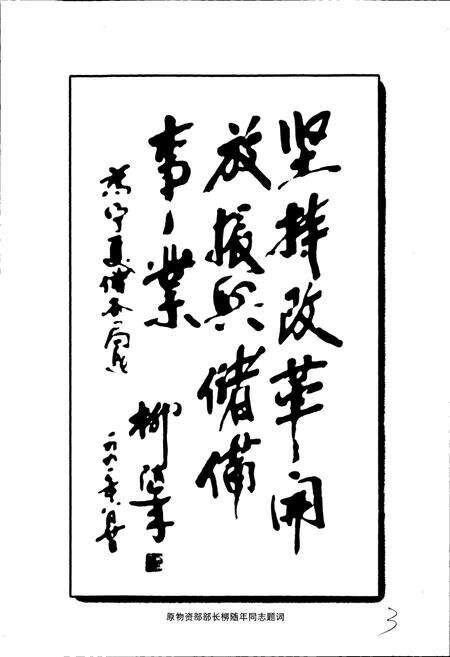 坚持改革、开
放振兴储備
事业
为宁夏储备局题
柳随年
原物资部部长柳随年同志题词
3